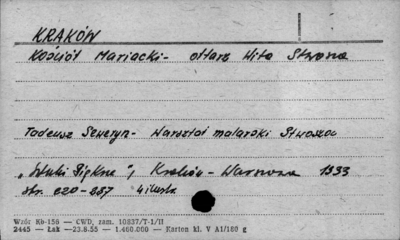 KRAKÓW
Kościół Mariacki - ołtarz Wita Stwosza
Tadeusz Seweryn - Warsztat malarski Stwosza
„Sztuki Piękne", Kraków - Warszawa 1933
str. 220-237 4 ilustr.
Wzór Kb-156 — CWD, zam. 10837/T-1/II
2445 — Łak — 23.8.55 — 1.460.000 — Karton kl. V A1/160 g